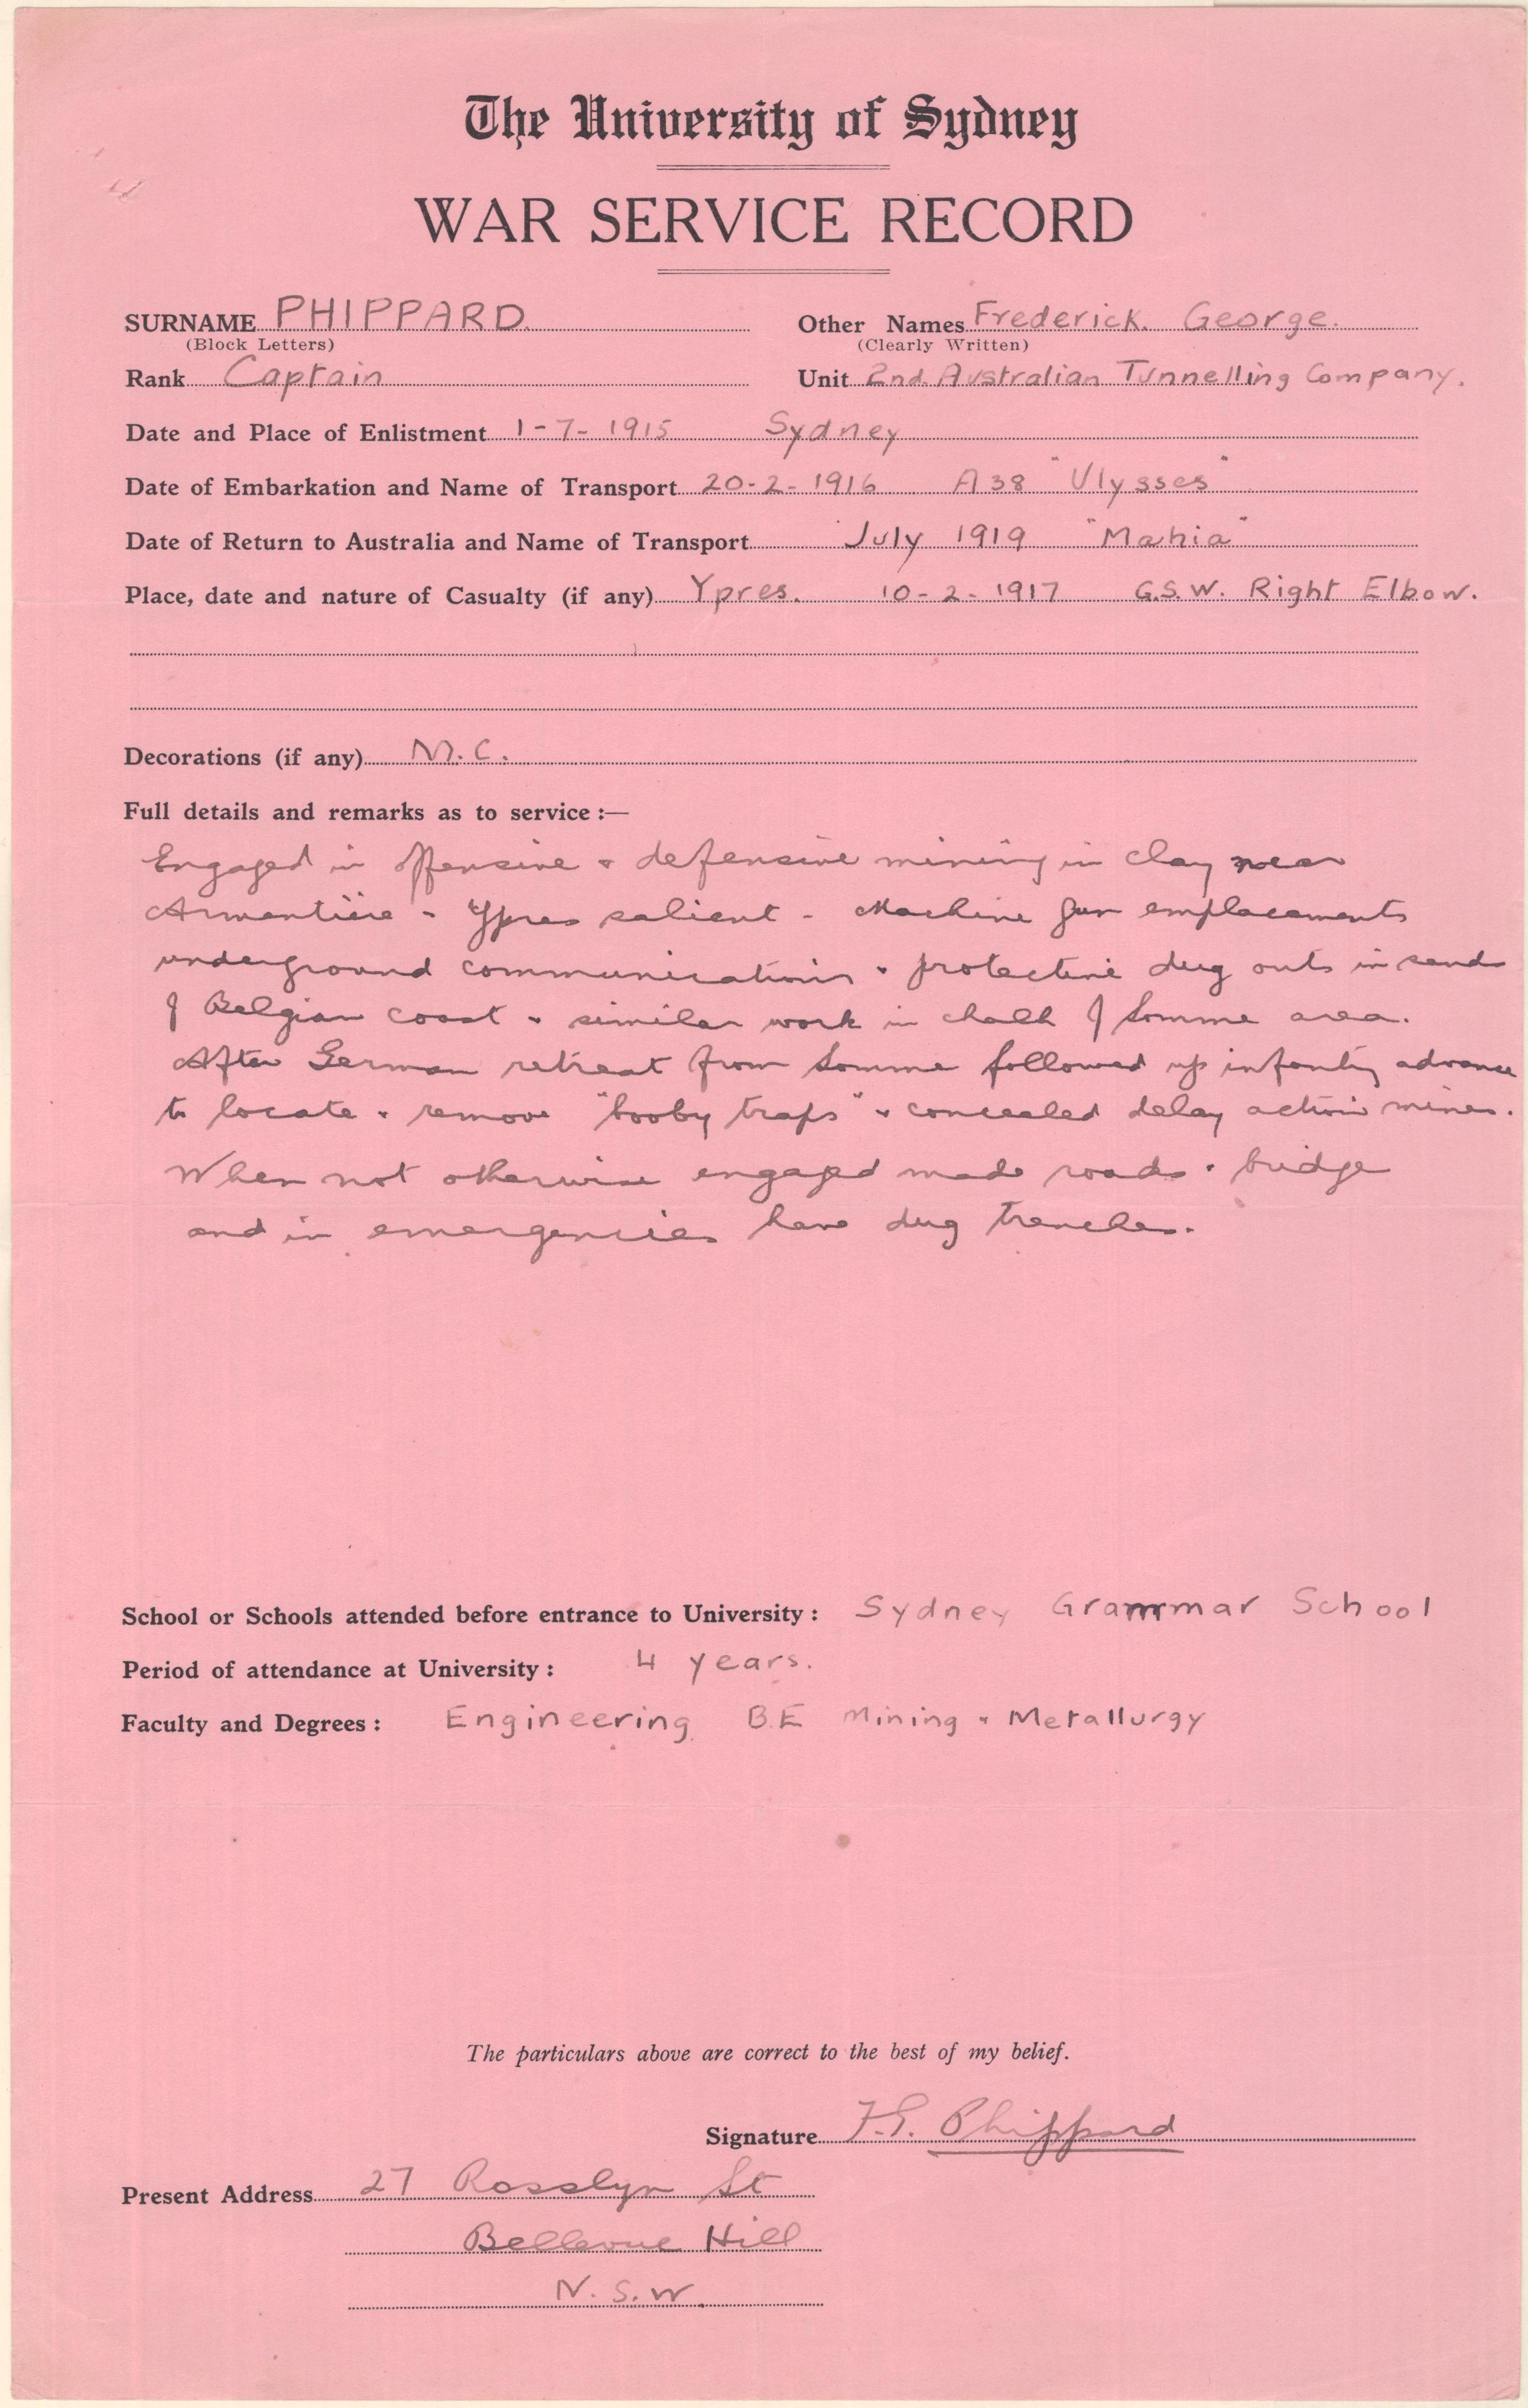 The University of Sydney
WAR SERVICE RECORD
SURNAME PHIPPARD. Other Names Frederick. George.
(Block Letters) (Clearly Written)
Rank Captain Unit 2nd. Australian Tunnelling Company.
Date and Place of Enlistment 1-7-1915 Sydney
Date of Embarkation and Name of Transport 20-2-1916 A38 "Ulysses"
Date of Return to Australia and Name of Transport July 1919 "Mahia"
Place, date and nature of Casualty (if any) Ypres. 10-2-1917 G.S.W. Right Elbow.
Decorations (if any) M.C.
Full details and remarks as to service:—
Engaged in offensive & defensive mining in clay near
Armentiere & Ypres salient - Machine gun emplacements
underground communications & protective dug outs in sand
of Belgian coast & similar work in chalk of Somme area.
After German retreat from Somme followed up infantry advance
to locate & remove "booby traps" & concealed delay action mines.
When not otherwise engaged made roads & bridge
and in emergencies have dug trenches.
School or Schools attended before entrance to University: Sydney Grammar School
Period of attendance at University: 4 years.
Faculty and Degrees: Engineering B.E Mining & Metallurgy
The particulars above are correct to the best of my belief.
Signature F.G. Phippard
Present Address 27 Rosslyn St
Bellevue Hill
N.S.W.